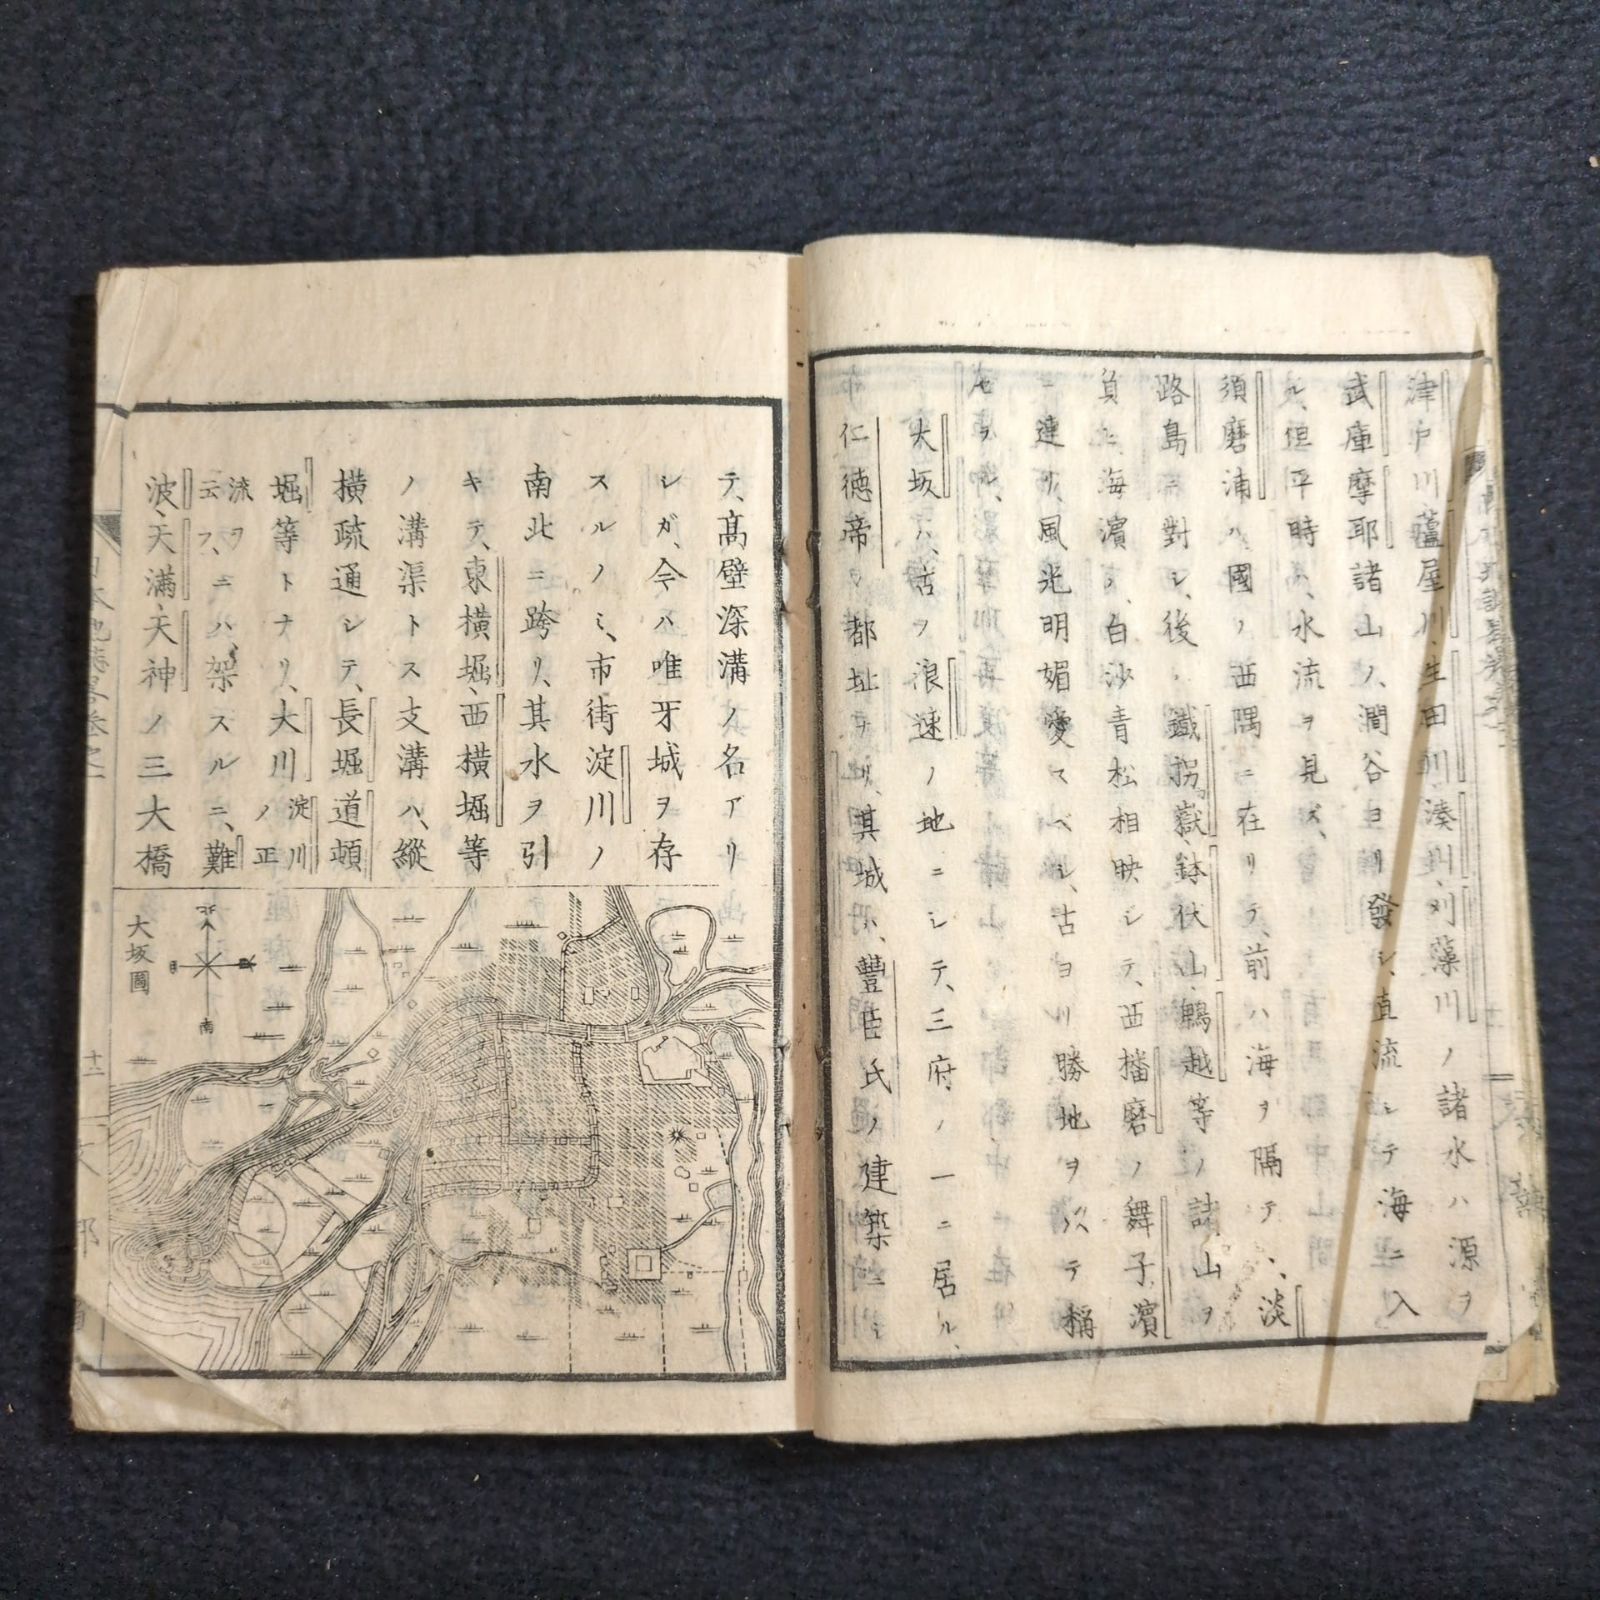 津戸川蘆屋川、生田川、湊川、刈藻川ノ諸水ハ源ヲ
武庫摩耶諸山ノ、澗谷ヨリ發シ、直流シテ海ニ入
ル、但平時ハ、水流ヲ見ズ、
須磨浦ハ國ノ西隅ニ在リテ、前ハ海ヲ隔テヽ、淡
路島ニ對シ、後ハ鐵拐嶽、鉢伏山、鵯越等ノ諸山ヲ
負ヒ海濱ハ、白沙青松相映シテ、西播磨ノ舞子濱
ニ連リ、風光明媚愛スベシ、古ヨリ勝地ヲ以テ稱
セラル、
大坂ハ、古ヲ浪速ノ地ニシテ、三府ノ一ニ居ル、
仁德帝ノ都址ナリ、其城ハ、豐臣氏ノ建築ニシ
テ、高壁深溝ノ名アリ
シガ、今ハ唯牙城ヲ存
スルノミ、市街淀川ノ
南北ニ跨リ、其水ヲ引
キテ、東橫堀、西橫堀等
ノ溝渠トス支溝ハ、縱
橫疏通シテ、長堀道頓
堀等トナリ、大川淀川ノ正
流ヲ云フ、ニハ架スルニ、難
波、天滿、天神ノ三大橋
大坂圖
北
南
日本地誌略卷之二
十二